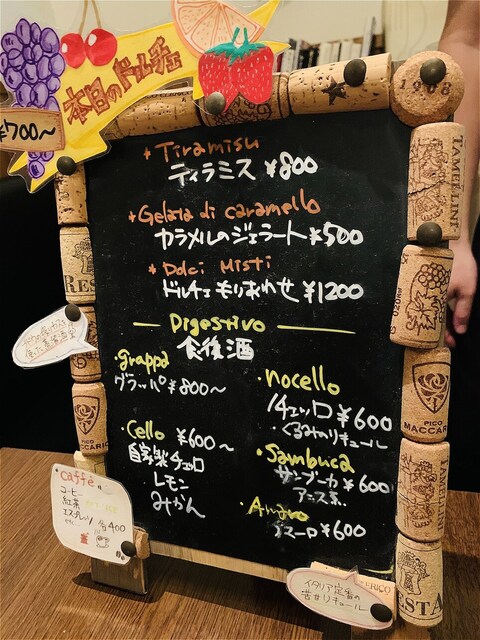 本日のドルチェ
¥700～
+ Tiramisu
ティラミス ¥800
* Gelata di caramello
カラメルのジェラート ¥500
* Dolci Misti
ドルチェもりあわせ ¥1200
Digestivo
食後酒
・grappa
グラッパ ¥800～
・Cello ¥600～
自家製チェッロ
レモン
みかん
・nocello
ノチェッロ ¥600
・くるみのリキュール
・Sambuca
サンブーカ ¥600
アニス系
・Amaro
アマーロ ¥600
"caffé"
コーヒー
紅茶
エスプレッソ 各400
イタリア定番の
苦甘リキュール
1968
PICO
MACCARIO
PICO
MACCARIO